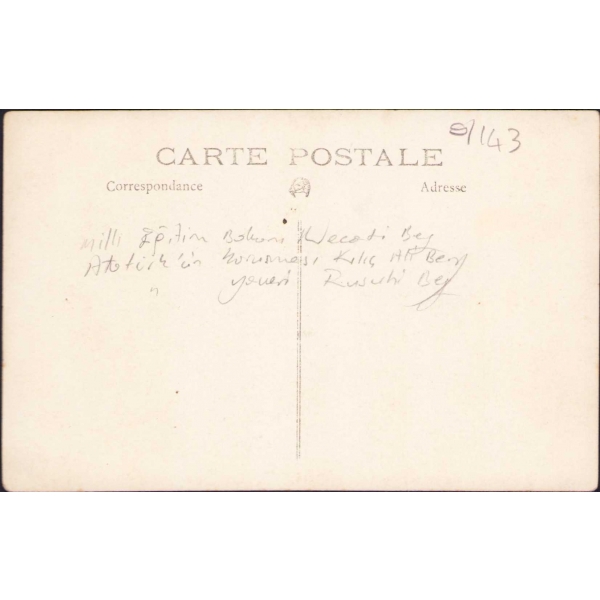 8/143
CARTE POSTALE
Correspondance
Adresse
Milli Eğitim Bakanı Necati Bey
Atatürk'ün koruması Kılıç Ali Bey
" yaveri Rusuhi Bey